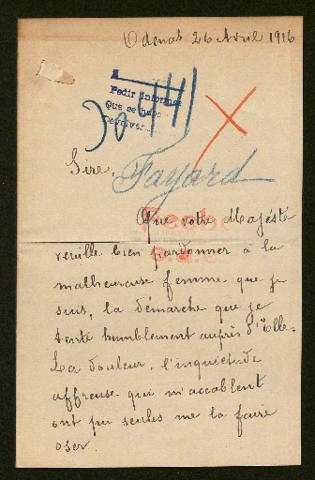 Odenas 26 Avril 1916
Pedir informes
Que se haga
Devolver
Sire,
Fayard
Que votre Majésté
veuille bien pardonner à la
malheureuse femme que je
suis, la démarche que je
tente humblement auprès d'Elle.
La douleur, l'inquiet-de
affreuse qui m'accablent
ont pu seules me la faire
oser.